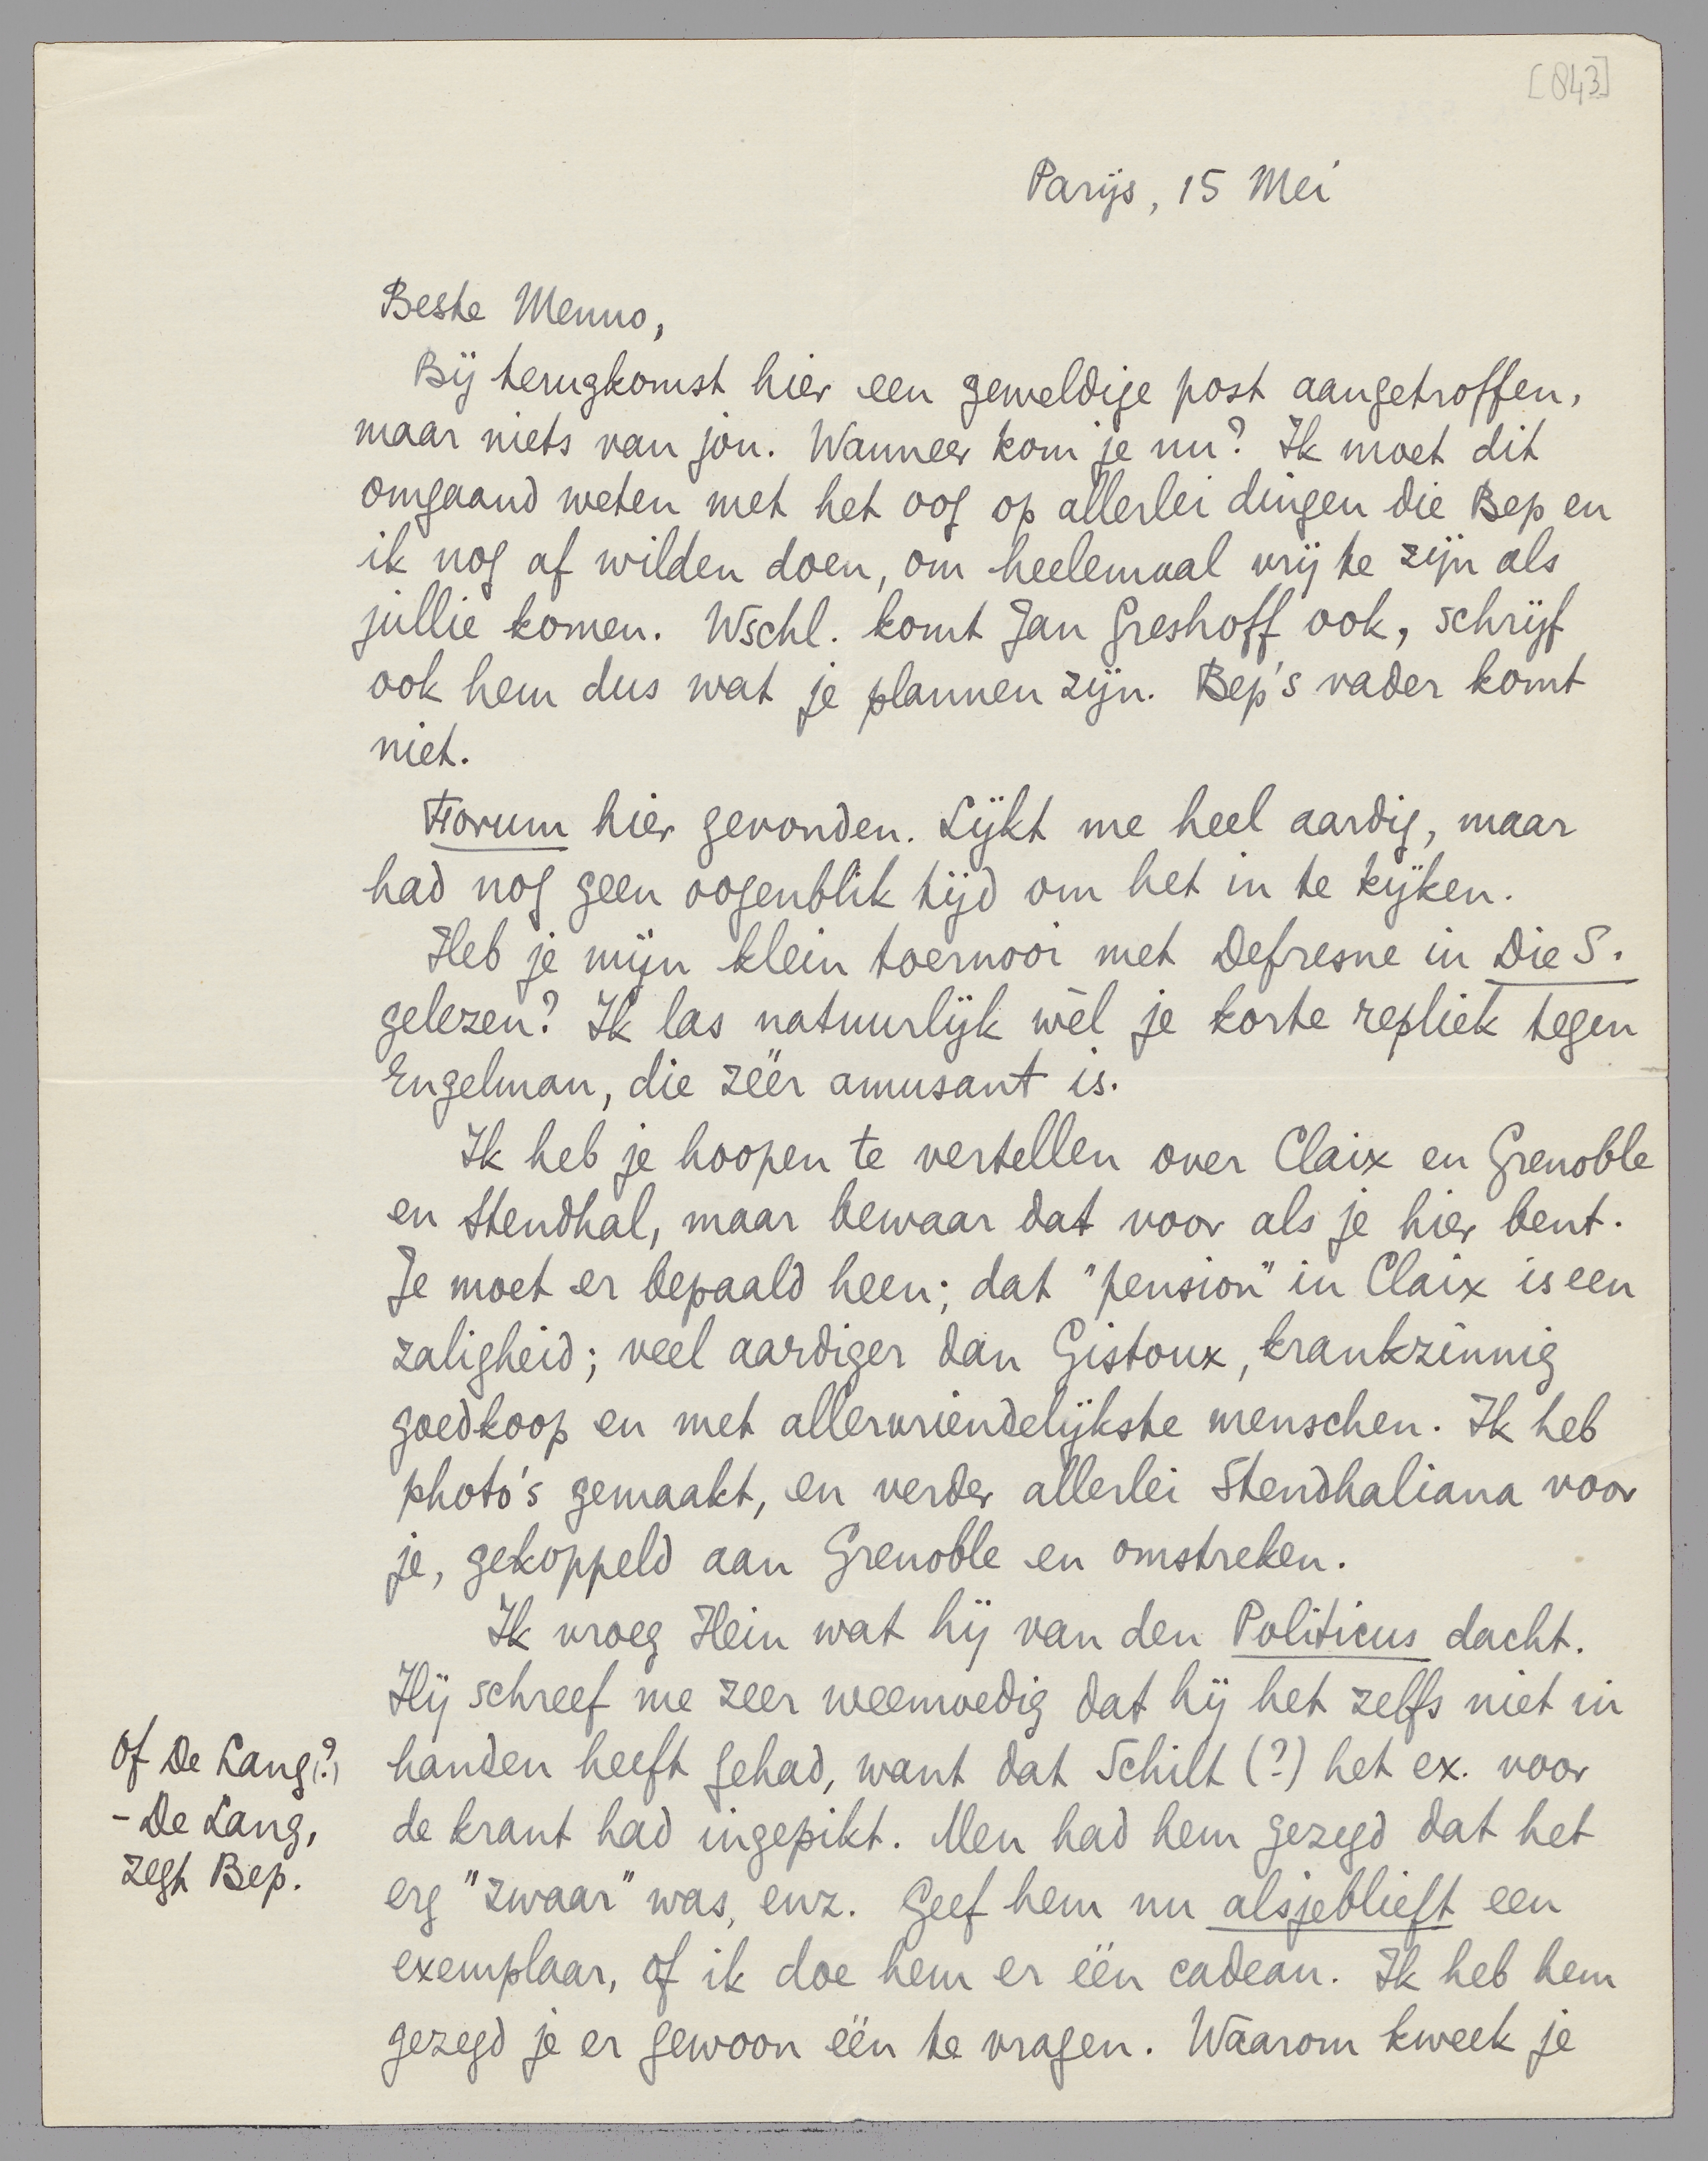 [843]
Parijs, 15 Mei
Beste Menno,
Bij terugkomst hier een geweldige post aangetroffen,
maar niets van jou. Wanneer kom je nu? Ik moet dit
omgaand weten met het oog op allerlei dingen die Bep en
ik nog af wilden doen, om heelemaal vrij te zijn als
jullie komen. Wschl. komt Jan Greshoff ook, schrijf
ook hem dus wat je plannen zijn. Bep's vader komt
niet.
Forum hier gevonden. Lijkt me heel aardig, maar
had nog geen oogenblik tijd om het in te kijken.
Heb je mijn klein toernooi met Defresne in Die S.
gelezen? Ik las natuurlijk wèl je korte repliek tegen
Engelman, die zéér amusant is.
Ik heb je hoopen te vertellen over Claix en Grenoble
en Stendhal, maar bewaar dat voor als je hier bent.
Je moet er bepaald heen; dat "pension" in Claix is een
zaligheid; veel aardiger dan Gistoux, krankzinnig
goedkoop en met allervriendelijkste menschen. Ik heb
photo's gemaakt, en verder allerlei Stendhaliana voor
je, gekoppeld aan Grenoble en omstreken.
Ik vroeg Hein wat hij van den Politicus dacht.
Hij schreef me zeer weemoedig dat hij het zelfs niet in
handen heeft gehad, want dat Schilt (?) het ex. voor
de krant had ingepikt. Men had hem gezegd dat het
erg "zwaar" was, enz. Geef hem nu alsjeblieft een
exemplaar, of ik doe hem er één cadeau. Ik heb hem
gezegd je er gewoon één te vragen. Waarom kweek je
of De Lang (?)
- De Lang,
zegt Bep.